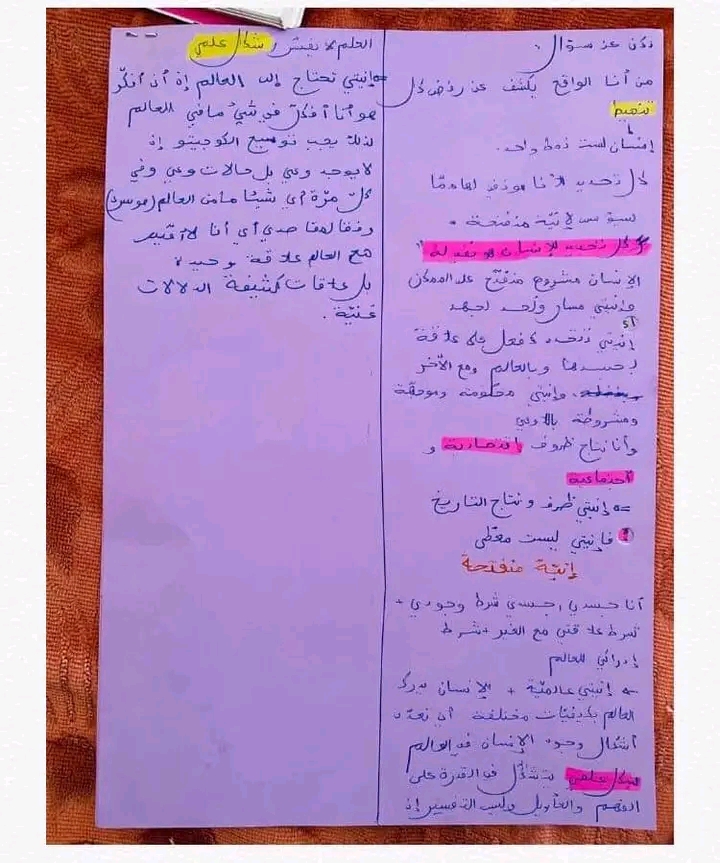 نكن عن سؤال
من أنا الواقع يكشف عن رفض كل
تنميط
إنسان لست نمط واحد.
كل تحديد للأنا هو نفي لها
ليس لإنيّة منفتحة.
"كل تحديد للإنسان هو نفي له"
الإنسان مشروع منفتح على الممكن
وإنيتي مسار وليد لجهد
أي
إنيتي تتحدد كفعل على علاقة
بجسدها وبالعالم ومع الآخر
وإنيتي محكومة وموجهة
ومشروطة بالوعي
وأنا نتاج ظروف اقتصادية و
اجتماعية
=> إنيتي ظرف ونتاج التاريخ
فإنيتي ليست معطى
إنيّة منفتحة
أنا جسدي، جسدي شرط وجودي +
شرط علاقتي مع الغير + شرط
إدراكي للعالم
=> إنيتي عالميّة + الإنسان يدرك
العالم بكيفيات مختلفة أي تعدد
أشكال وجود الإنسان في العالم
بشكل علمي يتشكل في القدرة على
الفهم والتأويل وليس التفسير إذ
العلم لا يفسر بشكل علمي
=> إنيتي تحتاج إلى العالم إذ أن أفكّر
هو أنا أفكّر في شيء ما في العالم
لذلك يجب توسيع الكوجيتو إذ
لا يوجد وعي بل حالات وعي وفي
كلّ مرّة أي شيئا ما من العالم (هوسرل)
وفقا لمقاصدي أي أنا لا أقيم
مع العالم علاقة وحيدة
بل علاقات كثيفة الدلالات
غنيّة.